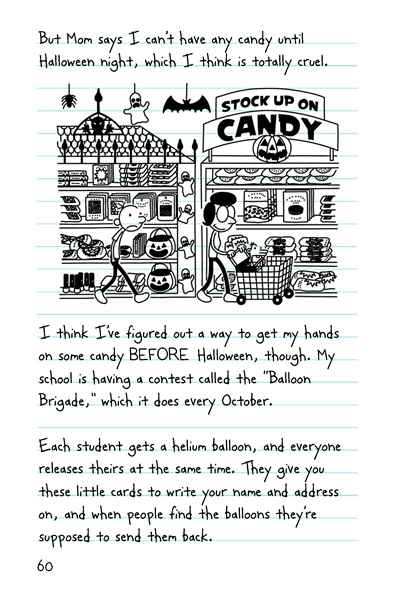 But Mom says I can't have any candy until
Halloween night, which I think is totally cruel.
STOCK UP ON
CANDY
I think I've figured out a way to get my hands
on some candy BEFORE Halloween, though. My
school is having a contest called the "Balloon
Brigade," which it does every October.
Each student gets a helium balloon, and everyone
releases theirs at the same time. They give you
these little cards to write your name and address
on, and when people find the balloons they're
supposed to send them back.
60